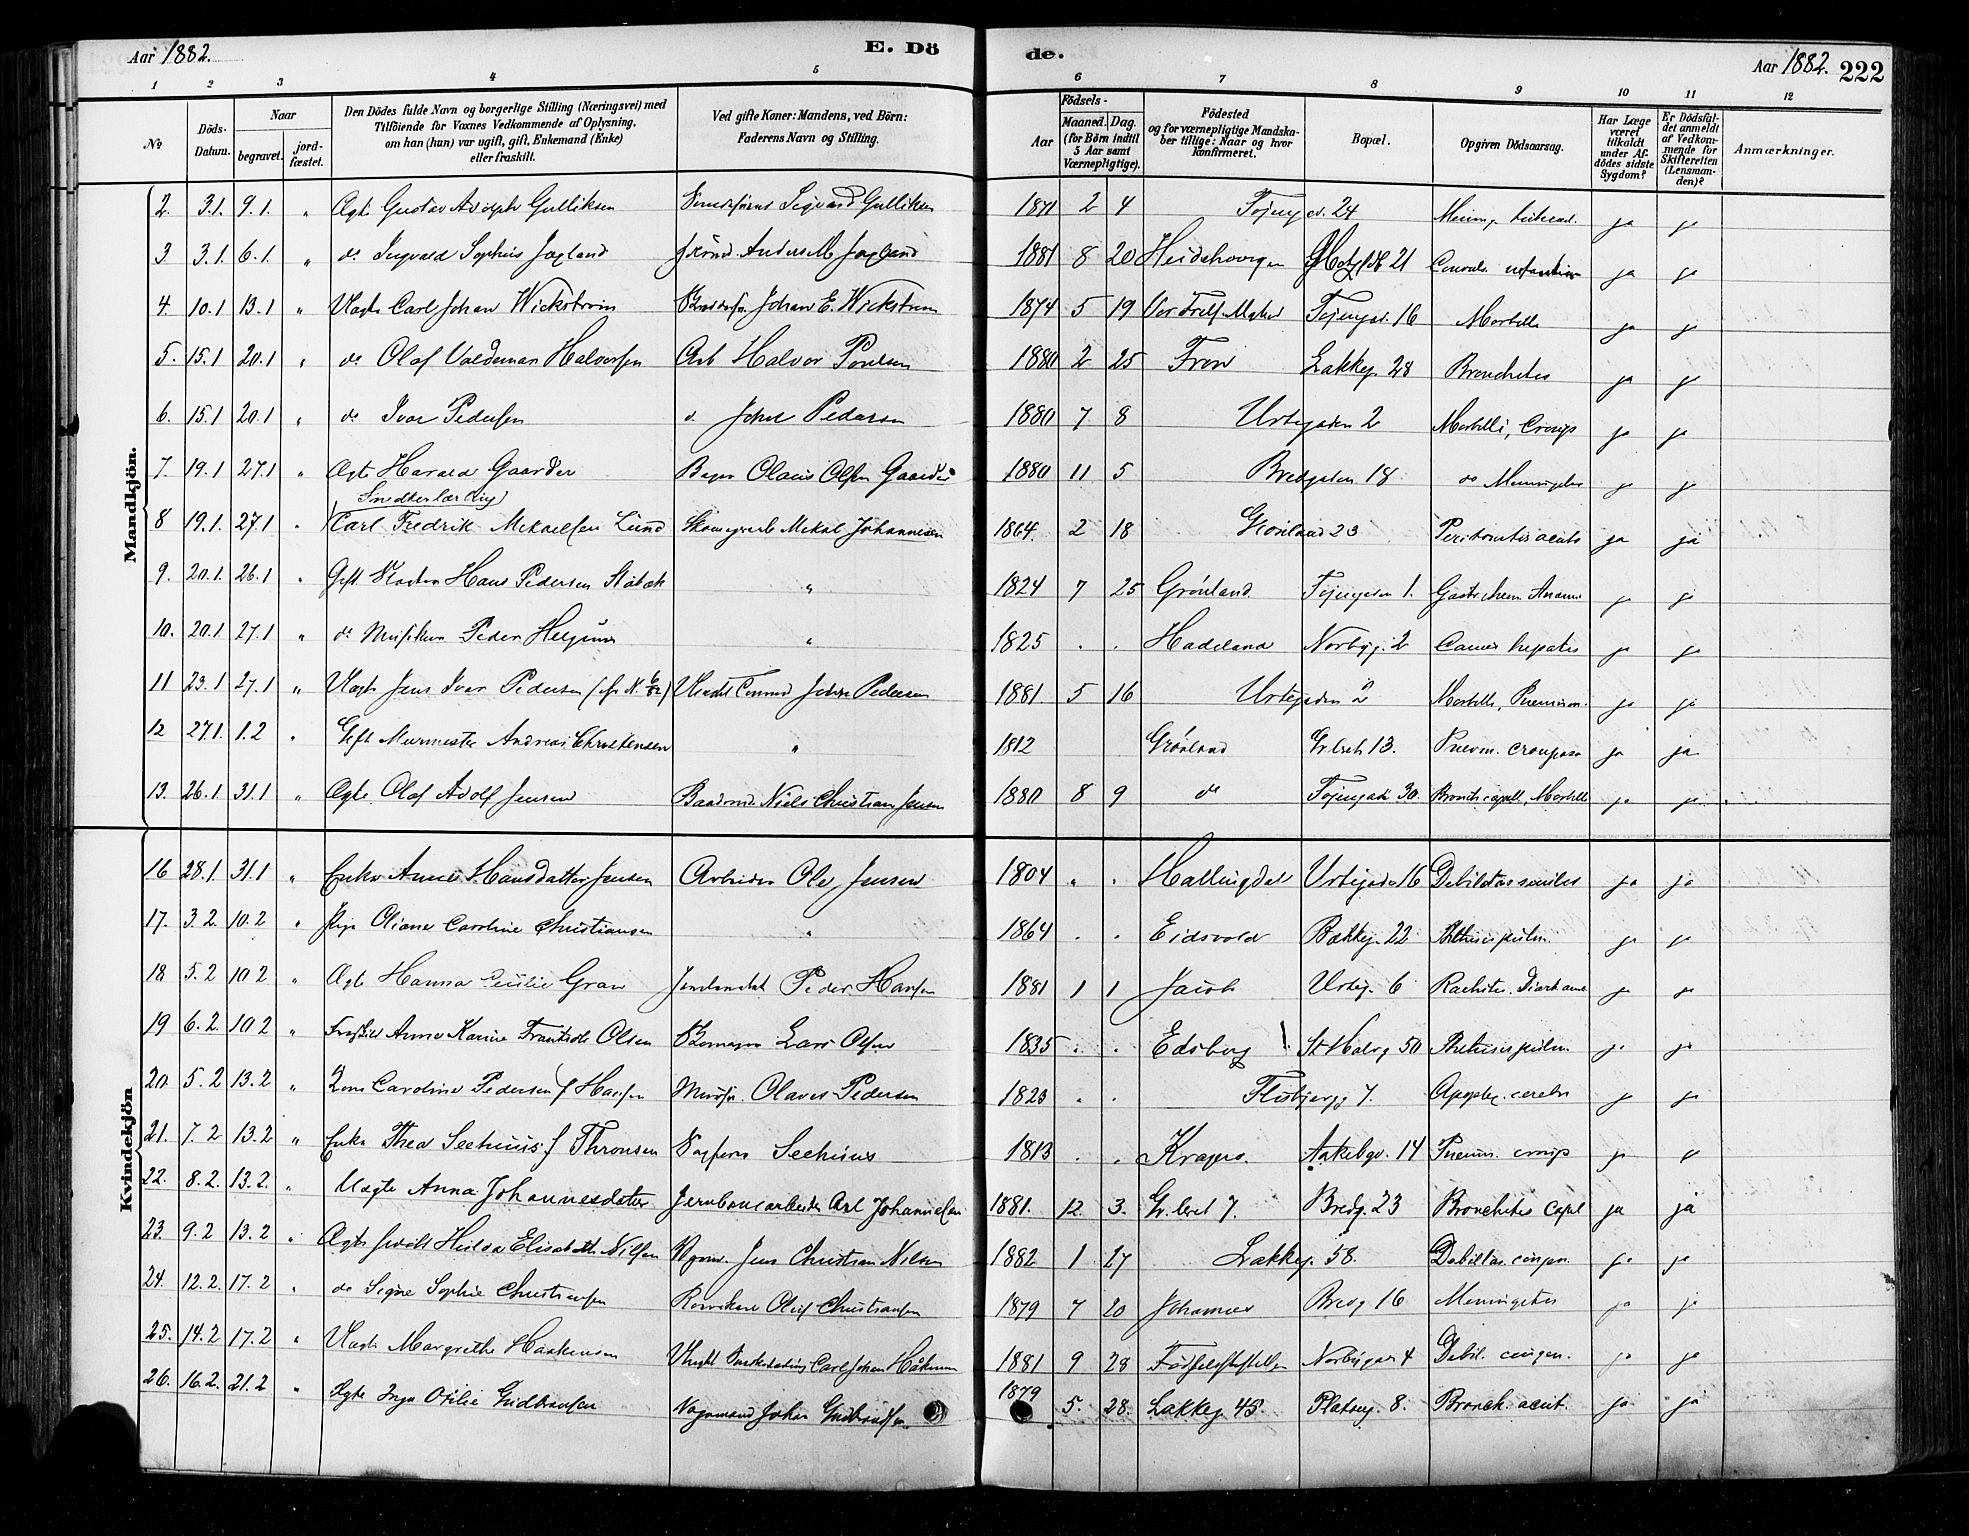 Aar 1882. E. Dö de. Aar 1882. 222
1 2 3 4 5 6 7 8 9 10 11 12
No Döds-Datum. Naar begravet. jord-fæstet. Den Dödes fulde Navn og borgerlige Stilling (Næringsvei) med Tilföiende for Voxnes Vedkommende af Oplysning, om han (hun) var ugift, gift, Enkemand (Enke) eller fraskilt. Ved gifte Koner: Mandens, ved Börn: Faderens Navn og Stilling. Födsels- Aar Maaned. Dag. (for Börn indtil 5 Aar samt Værnepligtige). Födested og for værnepligtige Mandska-ber tillige: Naar og hvor Konfirmeret. Bopæl. Opgiven Dödsaarsag. Har Læge været tilkaldt under Af-dödes sidste Sygdom? Er Dödsfal-det anmeldt af Vedkom-mende for Skifteretten (Lensman-den)? Anmærkninger.
Mandkjön.
2. 3.1. 9.1. " Ægte Gustav Adolph Gulliksen Sigvard Gulliksen 2 4 24 ja ja
3 3.1. 6.1. " do Ingvald Sophus Jogland Anders M Jogland 1881 8 20 21 ja ja
4. 10.1 13.1 " Uægte Carl Johan Wickstrøm Johan E. Wickstrøm 1874 5 19 Vor Frels. 16 Morbilli ja ja
5. 15.1 20.1 " do Olaf Valdemar Halvorsen Arb Halvor Poulsen 1880 2 25 Fron Lakkeg. 28 Bronchitis ja ja
6. 15.1 20.1 " do Ivar Pedersen d. John Pedersen 1880 7 8 Urtegaden 2 Morbilli, Croup ja ja
7. 19.1 27.1 " Ægte Harald Gaarder Bager Olaus Olsen Gaarder 1880 11 5 Bredgaden 18 do Meningitis ja ja
Snedkerlærling
8 19.1. 27.1 " Carl Fredrik Mikaelsen Lund Mikal Johannesen 1864. 2 18 Grønland 23 Peritonitis acuta ja ja
9. 20.1. 26.1 " Gift Hans Pedersen Stabæk " 1824 7 25 Grønland. 1. ja ja
10. 20.1 27.1 " do Musikus Peder Helgesen " 1825 . . Hadeland Norbyg. 2 Cancer hepatis ja ja
11 23.1 27.1 " Uægte Jens Ivar Pedersen (cfr N. 6/82) John Pedersen 1881. 5 16 Urtegaden 2 Morbilli, Pneumon. ja ja
12 27.1. 1.2 " Gift Murmester Andreas Christensen " 1812 Grønland Gr.leret 13. Pneum. crouposa ja ja
13. 26.1 31.1 " Ægte Olaf Adolf Jensen Niels Christian Jensen 1880 8 9 do 30. Bronch. capill., Morbilli ja ja
Kvindekjön
16 28.1. 31.1 " Enke Anne Hansdatter Jensen Arbeider Ole Jensen 1804 " . Hallingdal Urtegaden 16 Debilitas senilis ja ja
17. 3.2. 10.2 " Pige Oliane Caroline Christiansen " 1864 . . Eidsvold Bakkeg. 22 Phthisis pulm. ja ja
18 5.2 10.2 " Ægte Hanna Cecilie Gran Peder Hansen 1881 1 1 Jacob Urteg. 6 Rachitis. ja ja
19 6.2. 10.2 " Anne Karine Olsen Lars Olsen 1835 . . Edsberg St Halv.g 50 Phthisis pulm ja ja
20. 5.2 13.2 " Kone Caroline Pedersen f Hansen Olaves Pedersen 1823 " . 7. Apoplex. cerebri ja ja
21. 7.2 13.2 " Enke Thea Seehuus f Thronsen Seehuus 1813 . . Kragerø. Aakebgv. 14 Pneum. croup ja ja
22. 8.2. 13.2. " Uægte Anna Johannesdatter Jernbanearbeider Carl Johannesen 1881. 12. 3. Gr.leret 7. Bredg. 23 Bronchitis capil ja ja
23. 9.2 13.2 " Ægte Hilda Elisabeth Nilsen Jens Christian Nilsen 1882 1 27 Lakkeg. 58. Debilitas congen. ja ja
24. 12.2. 17.2 " do Signe Sophie Christiansen Oluf Christiansen 1879 7 20 Johannes Bredg 16 Meningitis ja ja
25. 14.2 17.2 " Uægte Margrethe Haakensen Carl Johan Håkensen 1881 9 28 Fødselsstiftelsen Norbygad 4 Debil. congen. ja ja
26. 16.2. 21.2 " Ægte Inga Otilie Gudbrandsen Vognmand Johan Gudbrandsen 1879 5. 28. Lakkeg. 43. Platoug. 8. Bronch. acut. ja ja